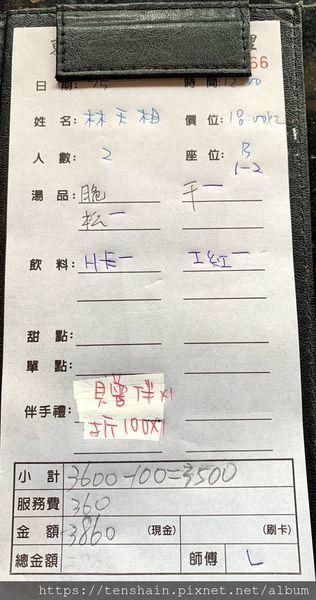 66
日期: 75 時間:12:00
姓名: 林天相 價位: 1800x2
人數: 2 座位: B
1-2
湯品: 鮑 干一
松一
飲料: H卡一 I紅一
甜點:
單點:
伴手禮: 貝醬伴x1
折100x1
小計 3600-100=3500
服務費 360
金額 3860 (現金) (刷卡)
總金額 師傅 L
https://tenshain.pixnet.net/album